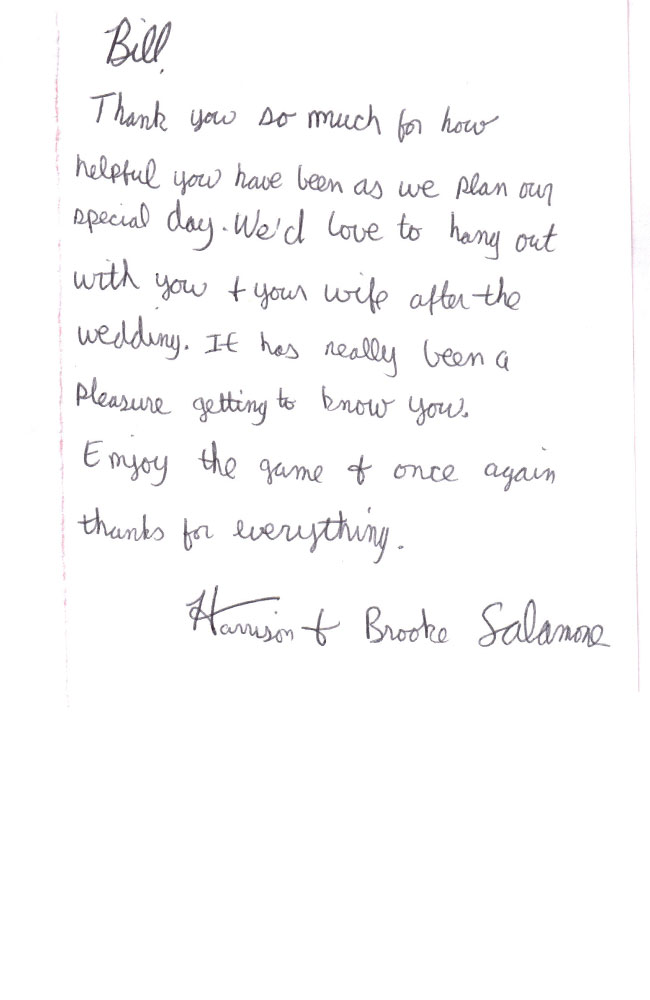 Bill,
Thank you so much for how
helpful you have been as we plan our
special day. We'd love to hang out
with you + your wife after the
wedding. It has really been a
pleasure getting to know you.
Enjoy the game & once again
thanks for everything.
Harrison & Brooke Salamone